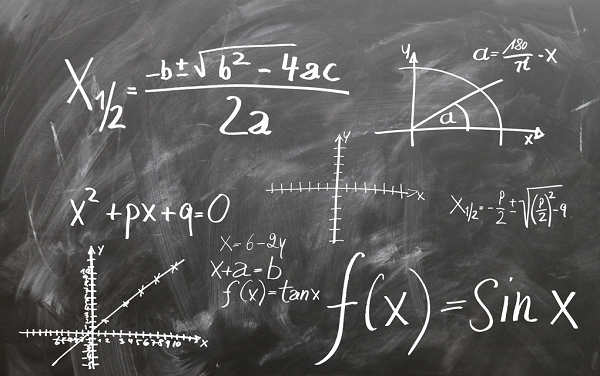 X1/2 = -b±√b²-4ac / 2a
y
a = 180/π - x
a
x
y
x
x² + px + q = 0
X1/2 = - p/2 ± √(p/2)² - q
x = 6 - 2y
x + a = b
f(x) = tanx
f(x) = Sin x
y
x